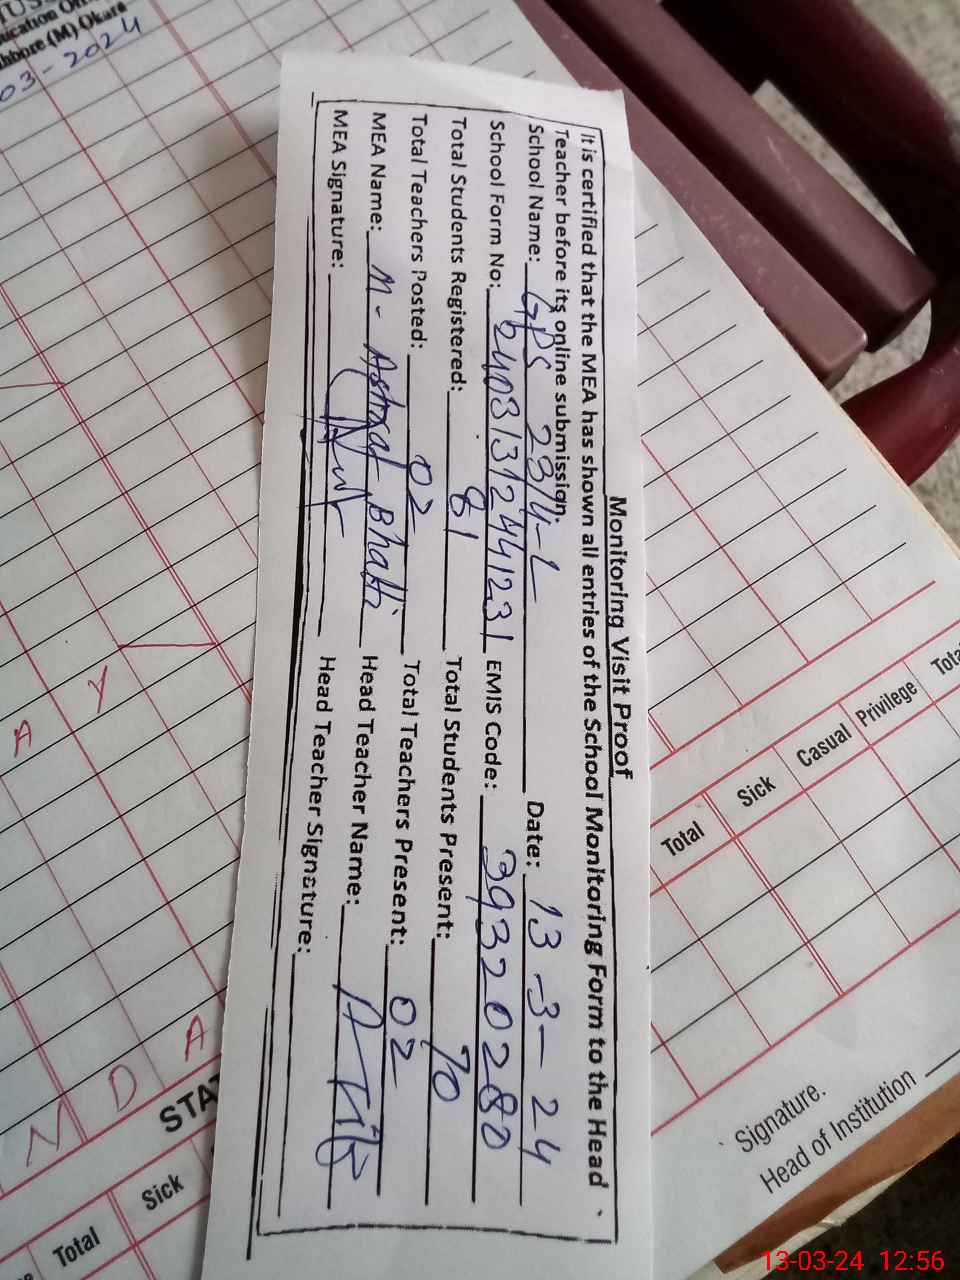 Monitoring Visit Proof
It is certified that the MEA has shown all entries of the School Monitoring Form to the Head
Teacher before its online submission.
School Name: GPS 23/4-L Date: 13-3-24
School Form No: 24031312441231 EMIS Code: 39320280
Total Students Registered: 81 Total Students Present: 70
Total Teachers Posted: 02 Total Teachers Present: 02
MEA Name: M- Ashraf Bhatti Head Teacher Name:
MEA Signature: Head Teacher Signature:
03-2024
(M) Okara
A Y
N D A
STA
Total Sick Casual Privilege Tota
Total Sick
Signature.
Head of Institution
13-03-24 12:56